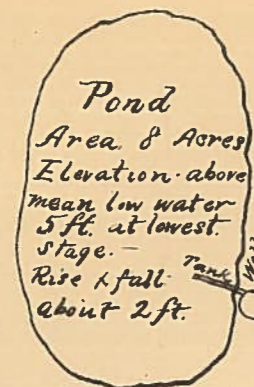 Pond
Area 8 Acres
Elevation above
mean low water
5 ft. at lowest
stage. —
Rise & fall
about 2 ft.
Tank